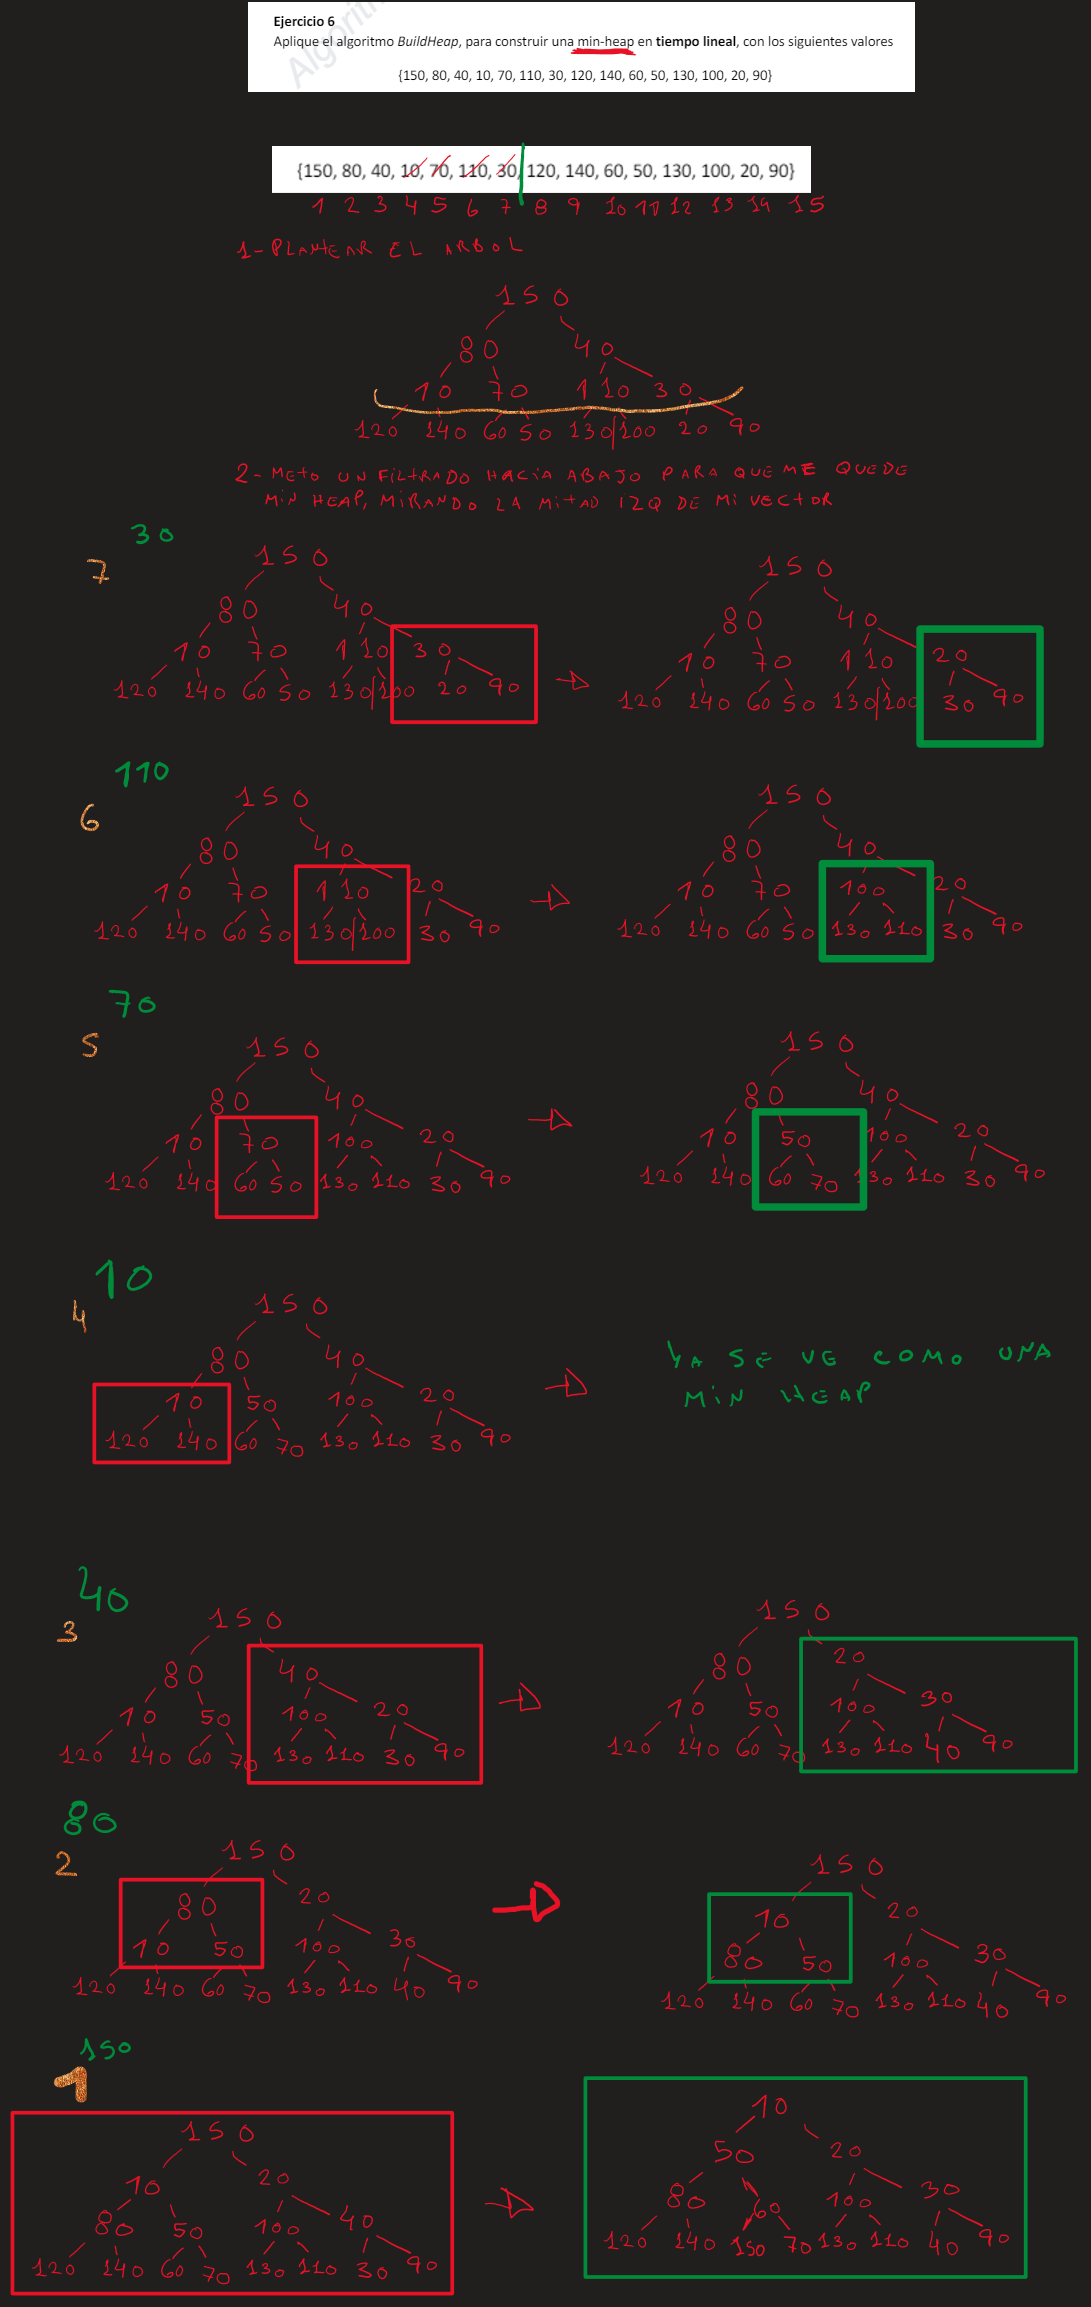 Algorit
Ejercicio 6
Aplique el algoritmo BuildHeap, para construir una min-heap en tiempo lineal, con los siguientes valores
{150, 80, 40, 10, 70, 110, 30, 120, 140, 60, 50, 130, 100, 20, 90}
{150, 80, 40, 10, 70, 110, 30, 120, 140, 60, 50, 130, 100, 20, 90}
1 2 3 4 5 6 7 8 9 10 11 12 13 14 15
1- PLANTEAR EL ARBOL
150
80 40
10 70 110 30
120 140 60 50 130 100 20 90
2- METO UN FILTRADO HACIA ABAJO PARA QUE ME QUEDE
MIN HEAP, MIRANDO LA MITAD IZQ DE MI VECTOR
30
7
150
80 40
10 70 110 30
120 140 60 50 130 100 20 90
150
80 40
10 70 110 20
120 140 60 50 130 100 30 90
110
6
150
80 40
10 70 110 20
120 140 60 50 130 100 30 90
150
80 40
10 70 100 20
120 140 60 50 130 110 30 90
70
5
150
80 40
10 70 100 20
120 140 60 50 130 110 30 90
150
80 40
10 50 100 20
120 140 60 70 130 110 30 90
10
4
150
80 40
10 50 100 20
120 140 60 70 130 110 30 90
YA SE VE COMO UNA
MIN HEAP
40
3
150
80 40
10 50 100 20
120 140 60 70 130 110 30 90
150
80 20
10 50 100 30
120 140 60 70 130 110 40 90
80
2
150
80 20
10 50 100 30
120 140 60 70 130 110 40 90
150
10 20
80 50 100 30
120 140 60 70 130 110 40 90
150
1
150
10 20
80 50 100 40
120 140 60 70 130 110 30 90
10
50 20
80 60 100 30
120 140 150 70 130 110 40 90